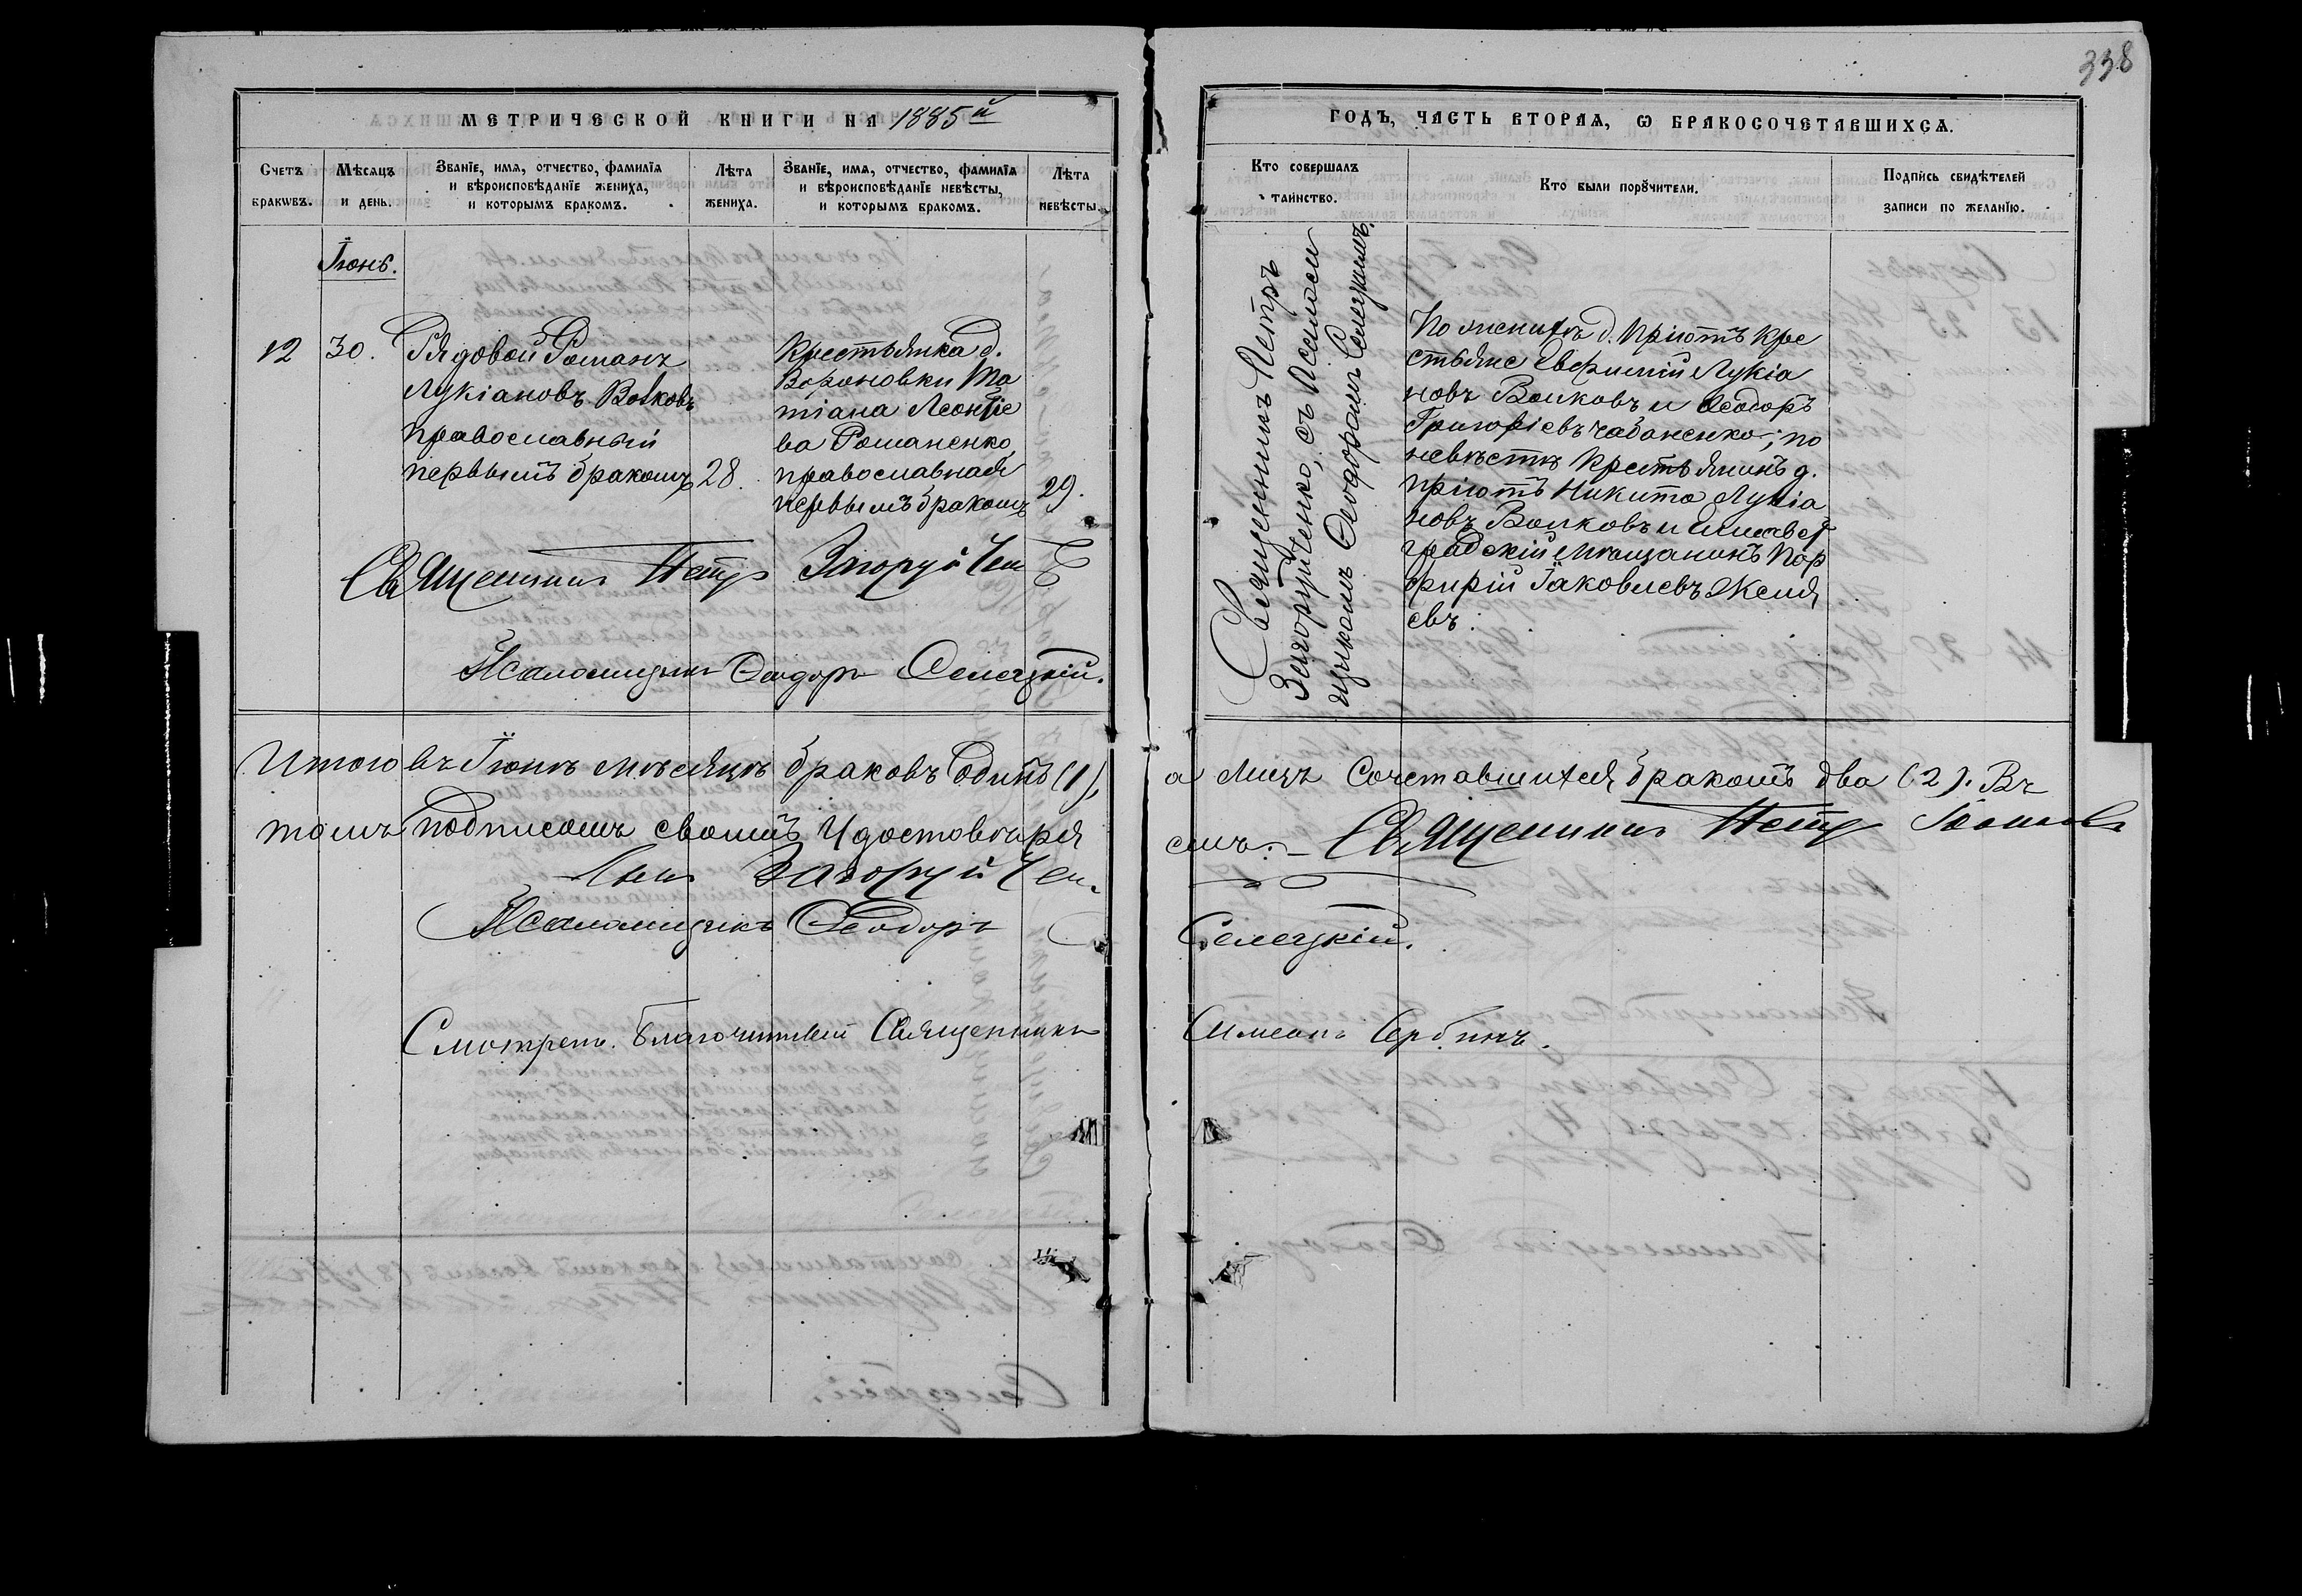 338
МЕТРИЧЕСКОЙ КНИГИ НА 1885й
ГОДЪ, ЧАСТЬ ВТОРАЯ, Ѡ БРАКОСОЧЕТАВШИХСЯ.
Счетъ бракѡвъ.
Мѣсяцъ и день.
Званїе, имя, отчество, фамилїя
и вѣроисповѣданїе жениха,
и которымъ бракомъ.
Лѣта
жениха.
Званїе, имя, отчество, фамилїя
и вѣроисповѣданїе невѣсты,
и которымъ бракомъ.
Лѣта
невѣсты.
Кто совершалъ
таинство.
Кто были порꙋчители.
Подпись свидѣтелей
записи по желанїю.
Іюнь.
12
30.
Рядовой Романъ
Лукіановъ Волковъ
православный
первымъ бракомъ
28.
Крестьянка д.
Вороновки Та
тіана Леонтіе
ва Романенко,
православная
первымъ бракомъ
29.
Священникъ Петръ
Загоруйченко, съ Псаломщи
цикомъ Ѳеодоромъ Селецкимъ.
По женихѣ д. Пріютъ кре
стьяне Евфимій Лукіа
новъ Волковъ и Ѳеодоръ
Григоріевъ Чабаненко; по
невѣстѣ крестьянинъ д.
Пріютъ Никита Лукіа
новъ Волковъ и Елисавет
градскій мѣщанинъ Пор
фирій Іаковлевъ
евъ.
Священникъ Петръ Загоруйчен
ко
Псаломщикъ Ѳеодоръ Селецкій.
Итого въ Іюнѣ мѣсяцѣ браковъ одинъ (1),
а лицъ сочетавшихся бракомъ два (2). Въ
томъ подписомъ своимъ удостовѣряя
емъ. – Священникъ Петръ Іоанновъ
сынъ Загоруйчен
Псаломщикъ Ѳеодоръ
Селецкій.
Смотрелъ. Благочинный Священникъ
Симеонъ Сербинъ.